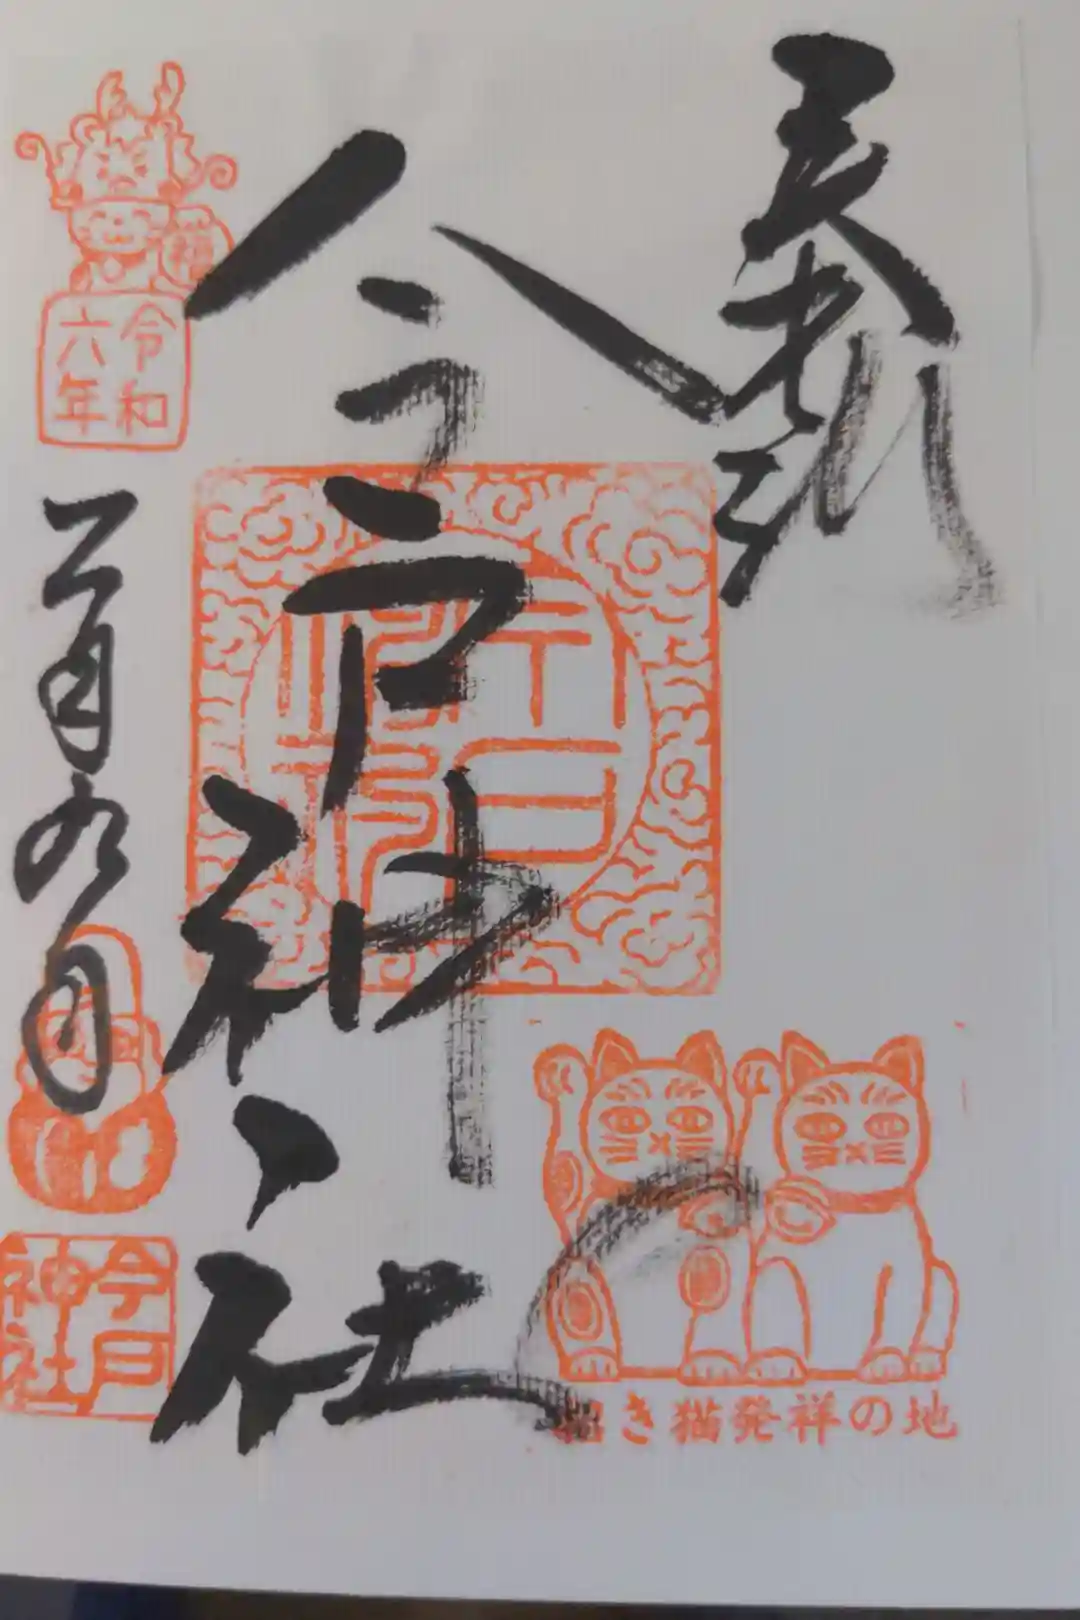 奉拝
今戸神社
今戸神社
令和
六年
福
二月九日
今戸
神社
招き猫発祥の地